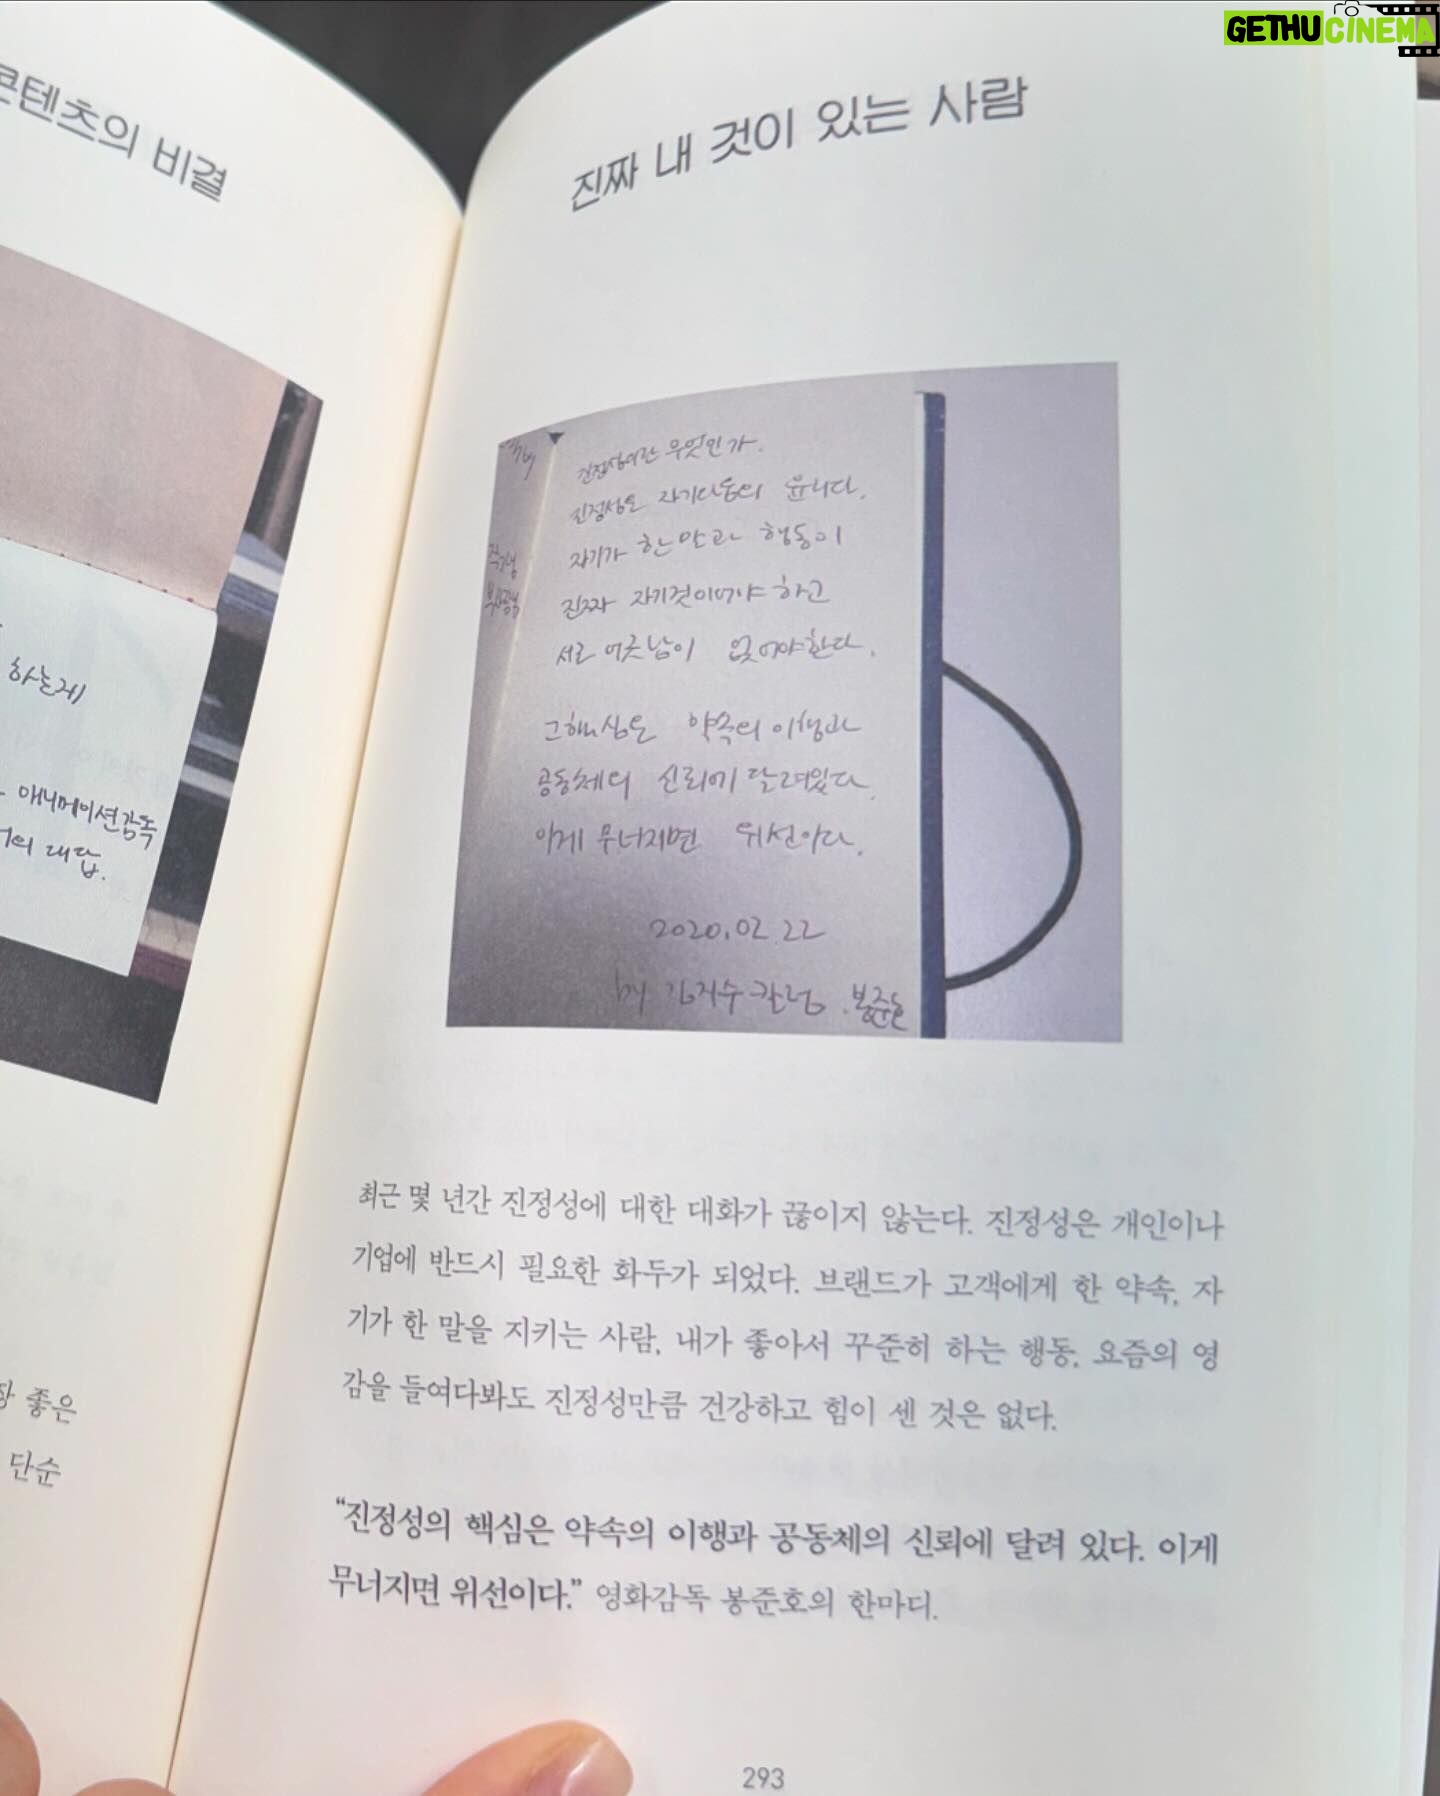 GETHUCINEMA
콘텐츠의 비결
하는게
애니메이션감독
대답.
좋은
단순
진짜 내 것이 있는 사람
진정성이란 무엇인가.
진정성은 자기다움의 윤리다.
자기가 한 말과 행동이
진짜 자기것이어야 하고
서로 어긋남이 없어야한다.
그 핵심은 약속의 이행과
공동체의 신뢰에 달려있다.
이게 무너지면 위선이다.
2020.02.22
by 김지수 칼럼, 봉준호
최근 몇 년간 진정성에 대한 대화가 끊이지 않는다. 진정성은 개인이나
기업에 반드시 필요한 화두가 되었다. 브랜드가 고객에게 한 약속, 자
기가 한 말을 지키는 사람, 내가 좋아서 꾸준히 하는 행동, 요즘의 영
감을 들여다봐도 진정성만큼 건강하고 힘이 센 것은 없다.
“진정성의 핵심은 약속의 이행과 공동체의 신뢰에 달려 있다. 이게
무너지면 위선이다.” 영화감독 봉준호의 한마디.
293